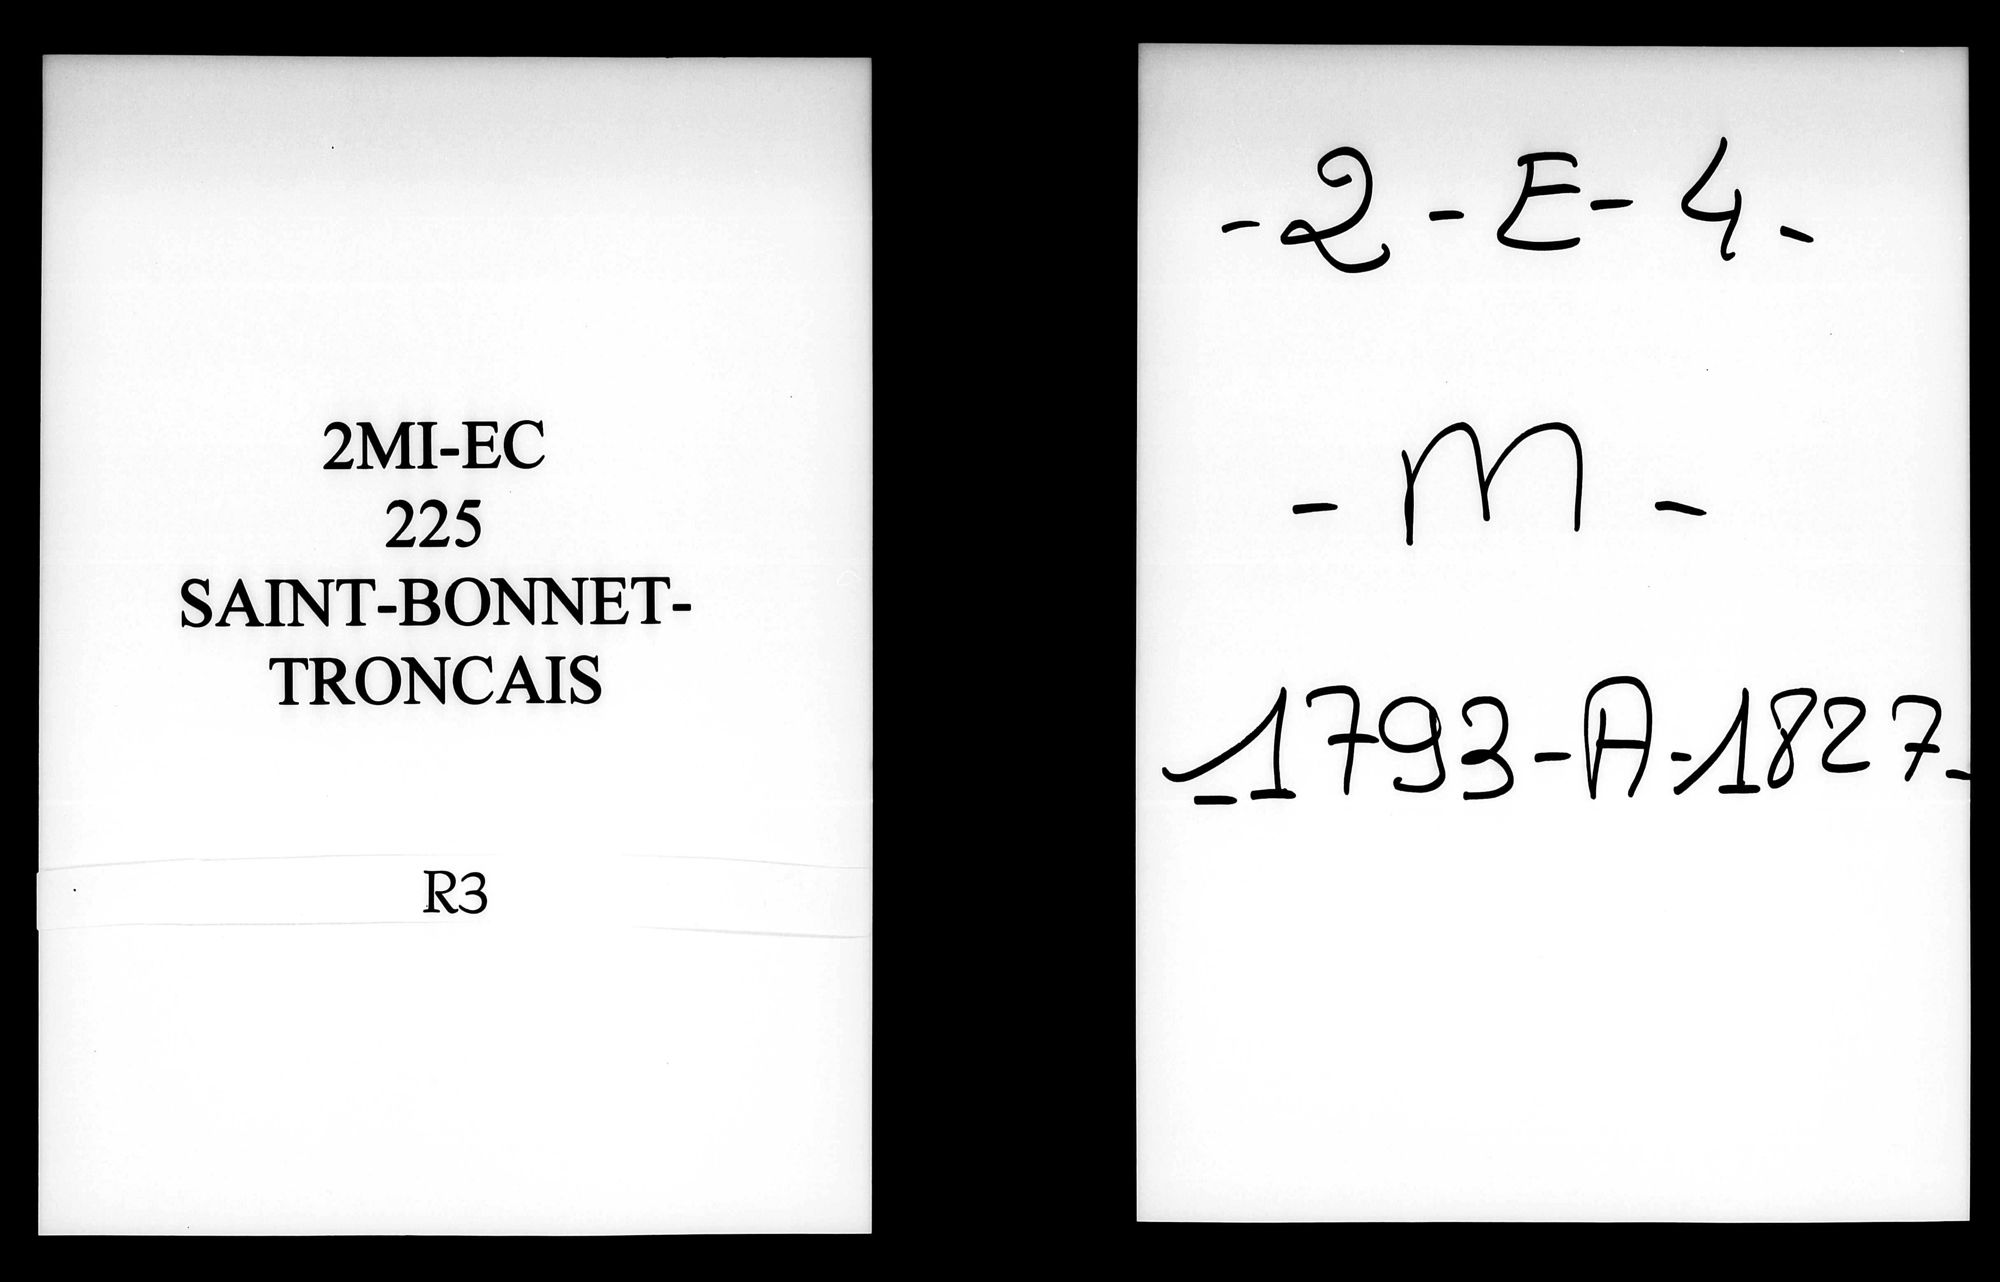 2MI-EC
225
SAINT-BONNET-
TRONCAIS
R3
-2-E-4-
-M-
-1793-A-1827-